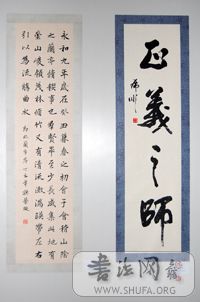 永和九年歲在癸丑暮春之初會于會稽山陰
之蘭亭脩禊事也羣賢畢至少長咸集此地有
崇山峻領茂林脩竹又有清流激湍暎帶左右
引以為流觴曲水
正義之師
书法网
WWW.SHUFA.ORG